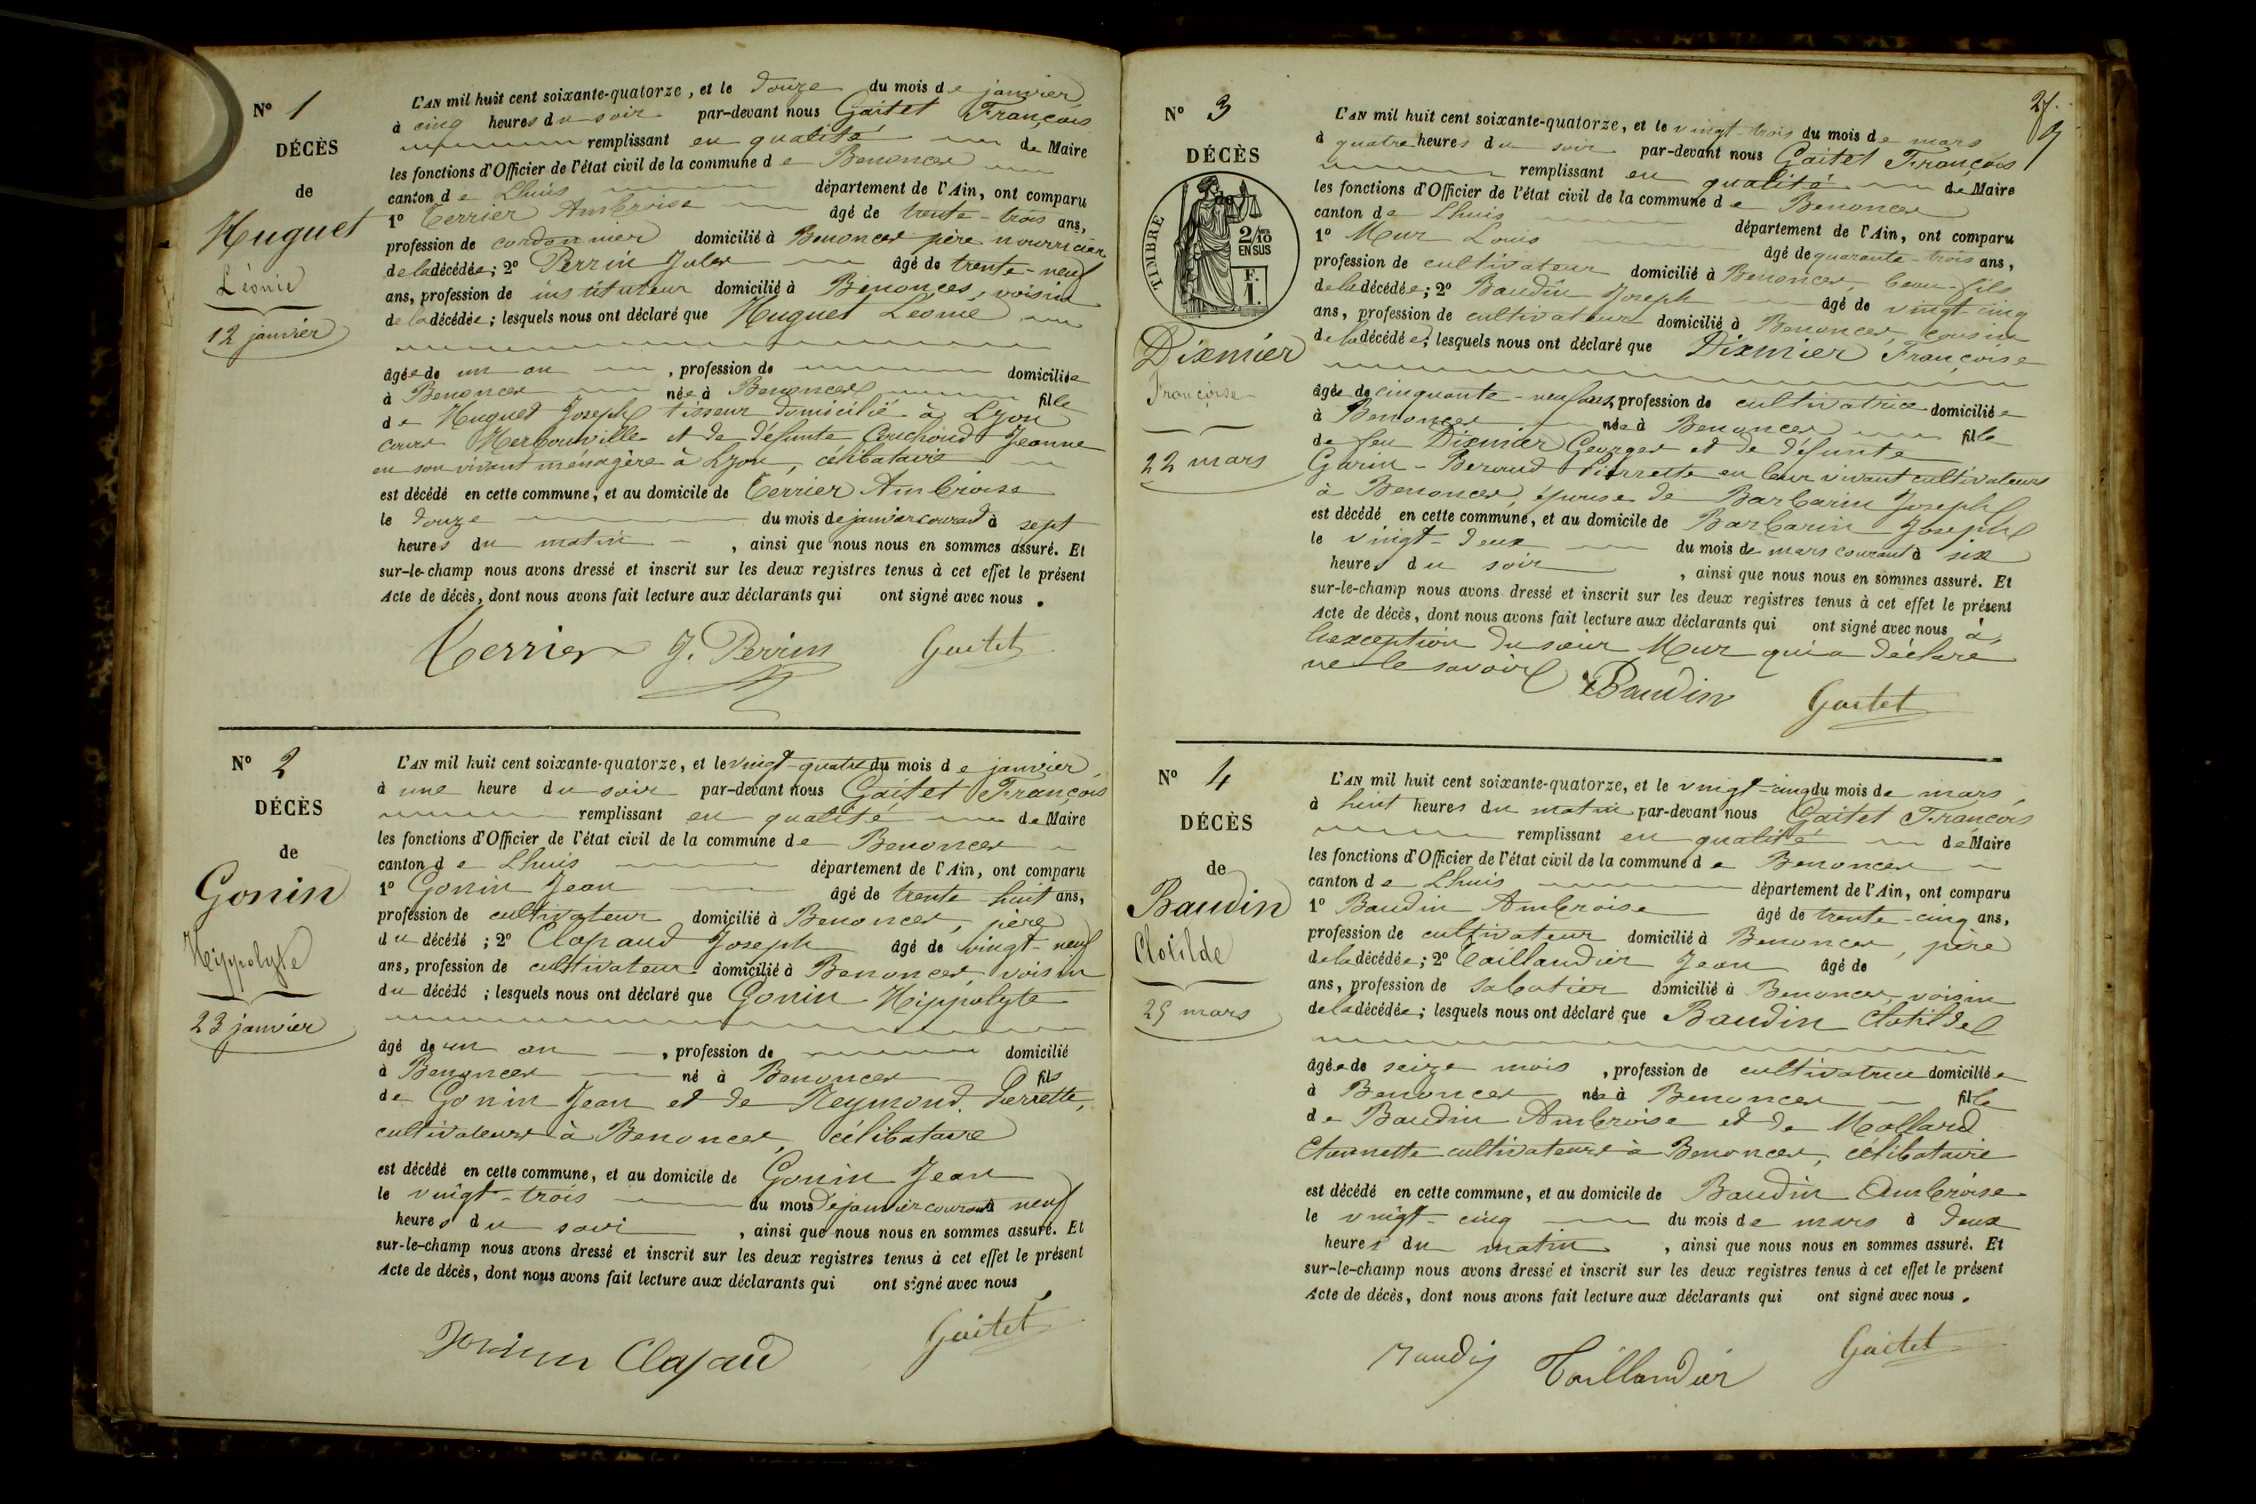 N° 1
DÉCÈS
de
Huguet
Léonie
12 janvier
L'AN mil huit cent soixante-quatorze, et le douze du mois de janvier
à cinq heures du soir par-devant nous Gaitet François
remplissant en qualité de Maire
les fonctions d'Officier de l'état civil de la commune de Benonces
canton de Lhuis département de l'Ain, ont comparu
1° Terrier Ambroise âgé de trente-trois ans,
profession de cordonnier domicilié à Benonces père nourricier
de la décédée; 2° Perrin Jules âgé de trente-neuf
ans, profession de instituteur domicilié à Benonces, voisin
de la décédée; lesquels nous ont déclaré que Huguet Léonie
âgée de un an, profession de domiciliée
à Benonces née à Benonces fille
de Huguet Joseph tisseur domicilié à Lyon
cours Herbouville et de défunte Couchoud Jeanne
en son vivant ménagère à Lyon, célibataire
est décédé en cette commune, et au domicile de Terrier Ambroise
le douze du mois de janvier courant à sept
heures du matin, ainsi que nous nous en sommes assuré. Et
sur-le-champ nous avons dressé et inscrit sur les deux registres tenus à cet effet le présent
Acte de décès, dont nous avons fait lecture aux déclarants qui ont signé avec nous.
Terrier J. Perrin Gaitet
N° 2
DÉCÈS
de
Gonin
Hippolyte
23 janvier
L'AN mil huit cent soixante-quatorze, et le vingt-quatre du mois de janvier,
à une heure du soir par-devant nous Gaitet François
remplissant en qualité de Maire
les fonctions d'Officier de l'état civil de la commune de Benonces
canton de Lhuis département de l'Ain, ont comparu
1° Gonin Jean âgé de trente-huit ans,
profession de cultivateur domicilié à Benonces, père
du décédé; 2° Clapaud Joseph âgé de vingt-neuf
ans, profession de cultivateur domicilié à Benonces, voisin
du décédé; lesquels nous ont déclaré que Gonin Hippolyte
âgé de un an, profession de domicilié
à Benonces né à Benonces fils
de Gonin Jean et de Reymond Pierrette,
cultivateurs à Benonces, célibataire
est décédé en cette commune, et au domicile de Gonin Jean
le vingt-trois du mois de janvier courant à neuf
heures du soir, ainsi que nous nous en sommes assuré. Et
sur-le-champ nous avons dressé et inscrit sur les deux registres tenus à cet effet le présent
Acte de décès, dont nous avons fait lecture aux déclarants qui ont signé avec nous.
Clapaud Gaitet
N° 3
DÉCÈS
de
TIMBRE
2/10
EN SUS
F.
1.
Dixmier
Françoise
22 mars
L'AN mil huit cent soixante-quatorze, et le vingt-trois du mois de mars
à quatre heures du soir par-devant nous Gaitet François
remplissant en qualité de Maire
les fonctions d'Officier de l'état civil de la commune de Benonces
canton de Lhuis département de l'Ain, ont comparu
1° Mur Louis âgé de quarante-trois ans,
profession de cultivateur domicilié à Benonces, beau-fils
de la décédée; 2° Baudin Joseph âgé de vingt-cinq
ans, profession de cultivateur domicilié à Benonces, cousin
de la décédée; lesquels nous ont déclaré que Dixmier Françoise
âgée de cinquante-neuf ans, profession de cultivatrice domiciliée
à Benonces née à Benonces fille
de feu Dixmier Georges et de défunte
Garin-Beroud Pierrette en leur vivant cultivateurs
à Benonces, épouse de Barbarin Joseph
est décédé en cette commune, et au domicile de Barbarin Joseph
le vingt-deux du mois de mars courant à six
heures du soir, ainsi que nous nous en sommes assuré. Et
sur-le-champ nous avons dressé et inscrit sur les deux registres tenus à cet effet le présent
Acte de décès, dont nous avons fait lecture aux déclarants qui ont signé avec nous à
l'exception du sieur Mur qui a déclaré
ne le savoir
Baudin Gaitet
N° 4
DÉCÈS
de
Baudin
Clotilde
25 mars
L'AN mil huit cent soixante-quatorze, et le vingt-cinq du mois de mars,
à huit heures du matin par-devant nous Gaitet François
remplissant en qualité de Maire
les fonctions d'Officier de l'état civil de la commune de Benonces
canton de Lhuis département de l'Ain, ont comparu
1° Baudin Ambroise âgé de trente-cinq ans,
profession de cultivateur domicilié à Benonces, père
de la décédée; 2° Taillandier Jean âgé de
ans, profession de sabotier domicilié à Benonces, voisin
de la décédée; lesquels nous ont déclaré que Baudin Clotilde
âgée de seize mois, profession de cultivatrice domiciliée
à Benonces née à Benonces fille
de Baudin Ambroise et de Mollard
cultivateurs à Benonces, célibataire
est décédé en cette commune, et au domicile de Baudin Ambroise
le vingt-cinq du mois de mars à deux
heures du matin, ainsi que nous nous en sommes assuré. Et
sur-le-champ nous avons dressé et inscrit sur les deux registres tenus à cet effet le présent
Acte de décès, dont nous avons fait lecture aux déclarants qui ont signé avec nous.
Taillandier Gaitet